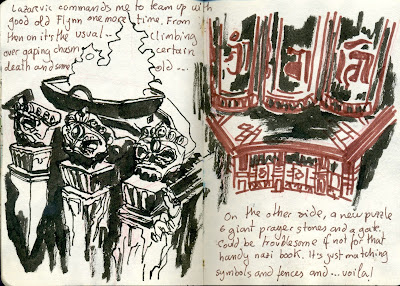 Lazarevic commands me to team up with
good old Flynn one more time. From
then on it's the usual.. climbing
over gaping chasm certain
death and some old...
On the other side, a new puzzle
6 giant prayer stones and a gate.
Could be troublesome if not for that
handy nazi book. It's just matching
symbols and fences and... voila!